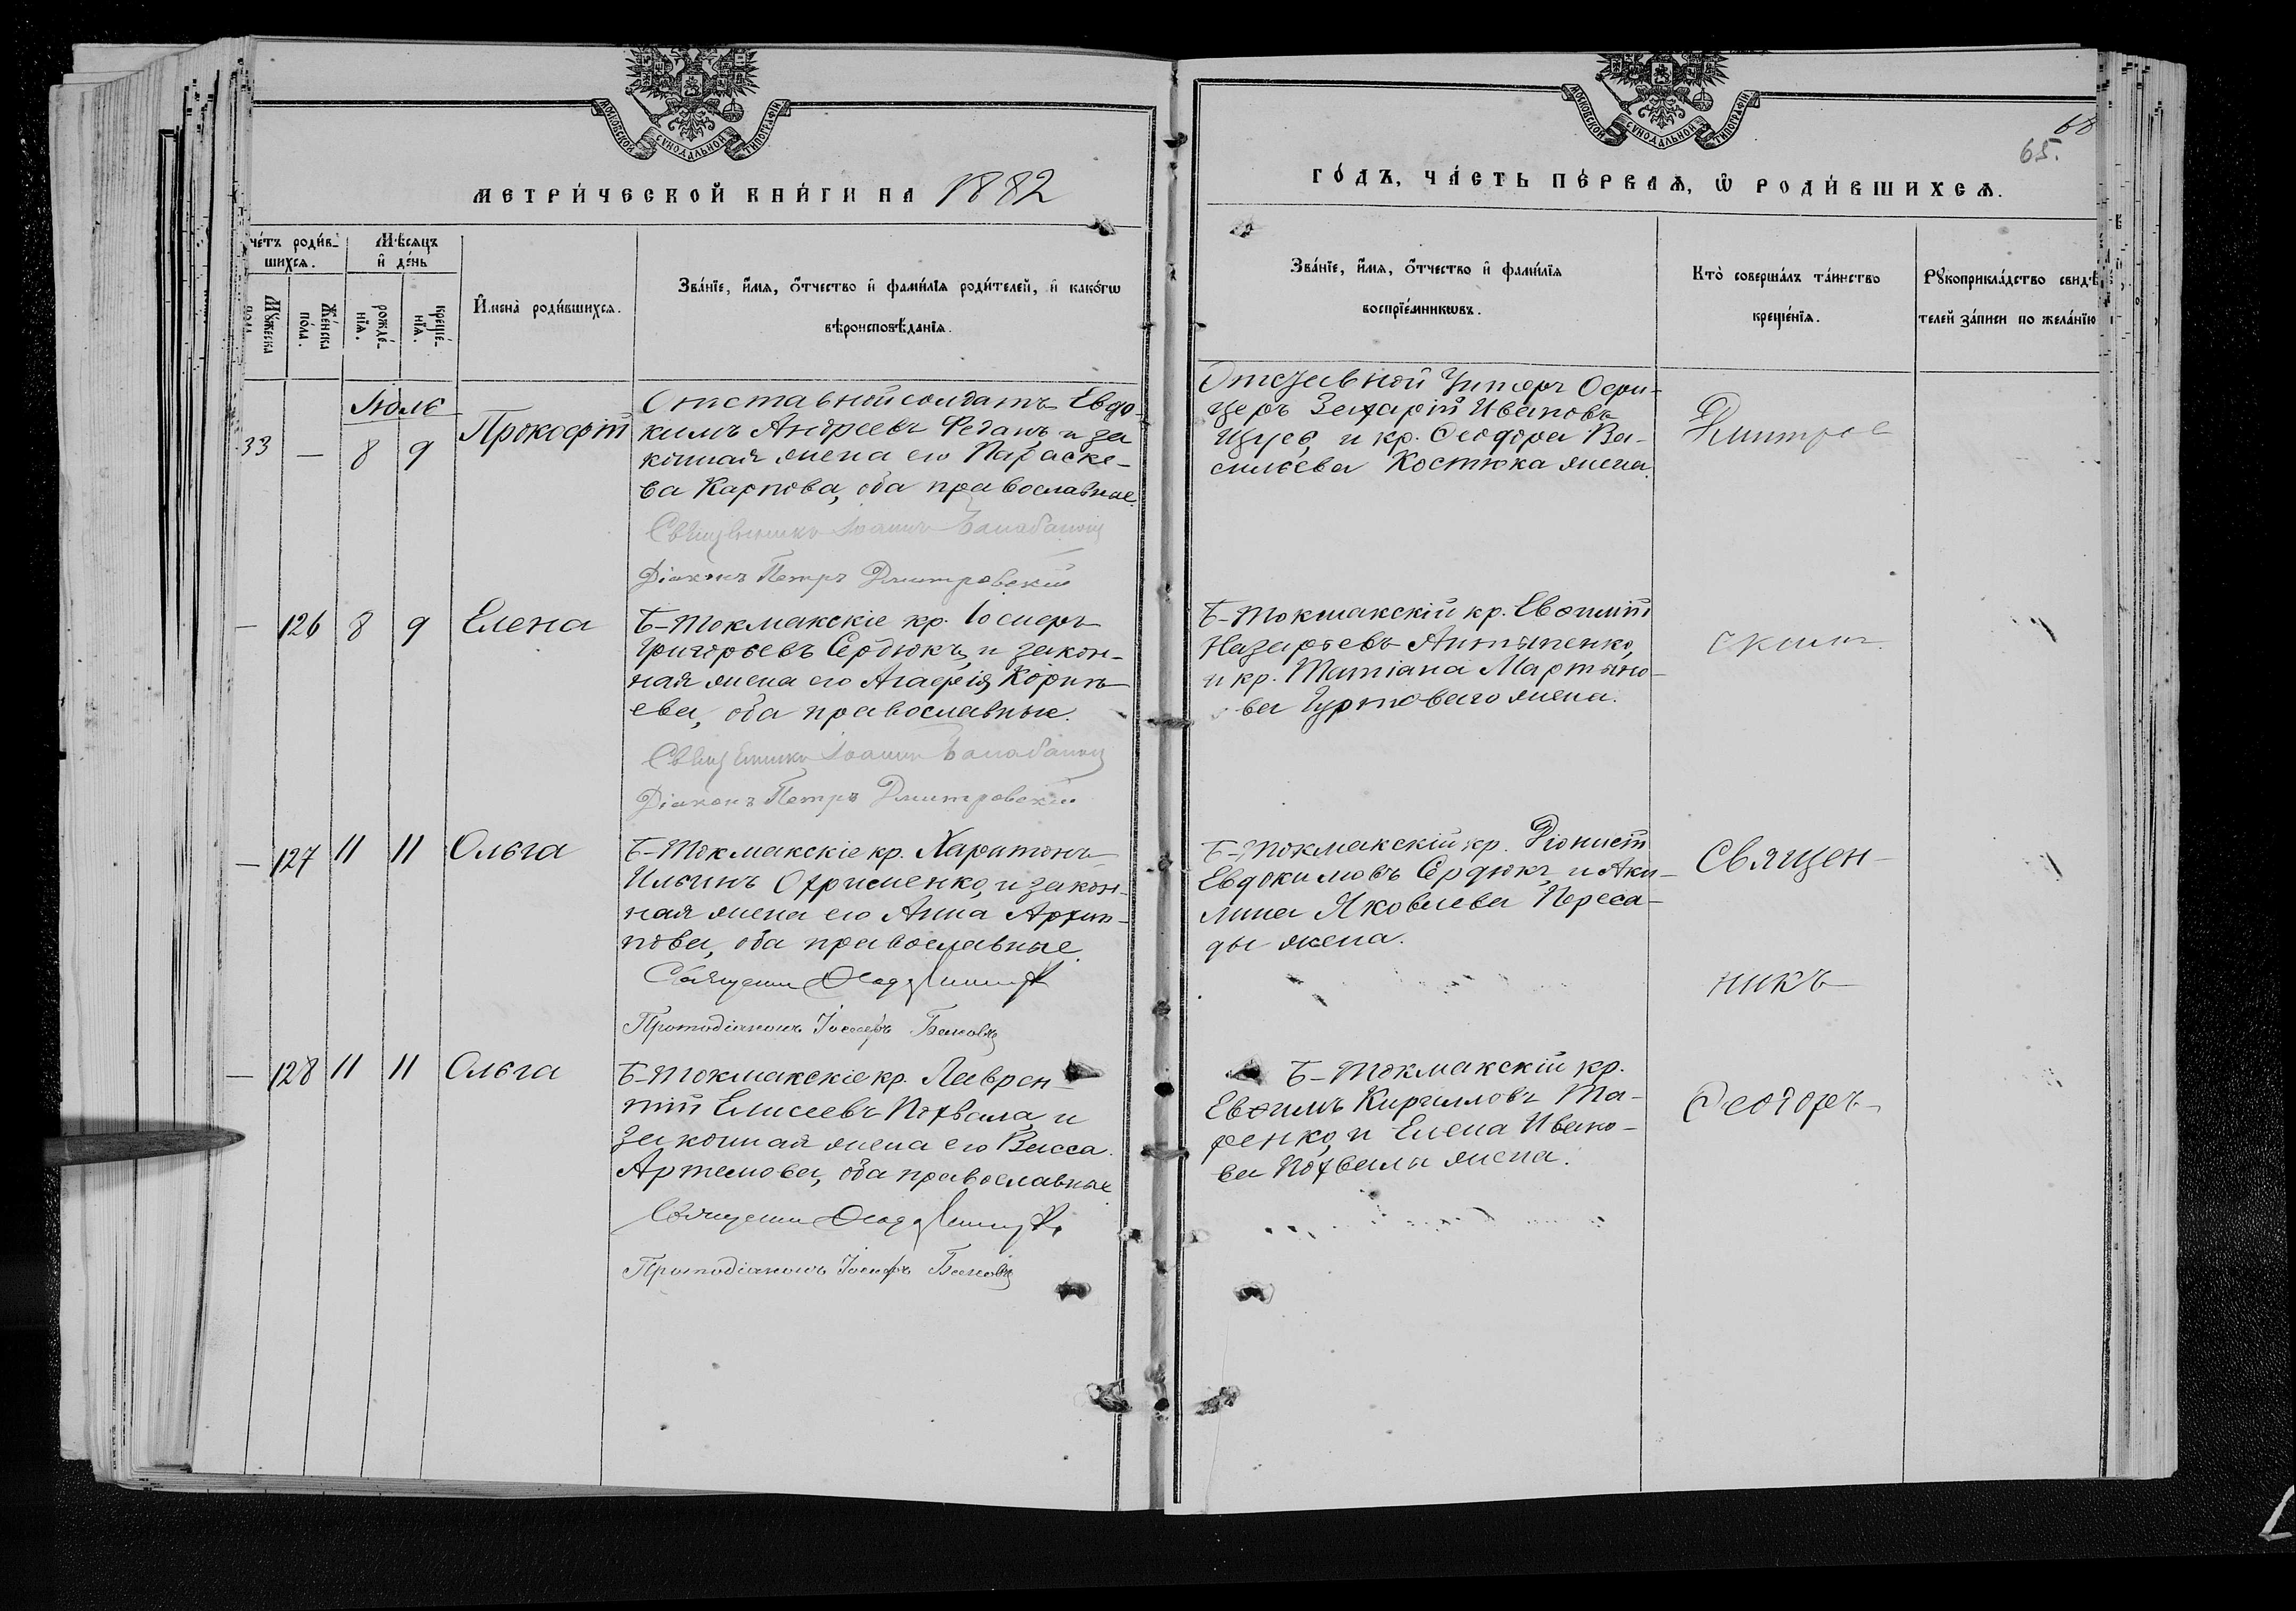 МОСКОВСКОЙ СУНОДАЛЬНОЙ ТИПОГРАФІИ
МЕТРИ́ЧЕСКОЙ КНИ́ГИ НА 1882
че́тъ роди́в-
шихсѧ.
Мѣ́сяцъ
и҆ де́нь
Мꙋ́жеска
Же́нска
по́ла.
рожде́-
нїѧ.
креще́-
нїѧ.
И҆мена̀ роди́вшихсѧ.
Зва́нїе, и҆́мѧ, ѻ҆́тчество и҆ фами́лїѧ роди́телей, и҆ како́гѡ
вѣроисповѣ́данїѧ.
Іюль
33 — 8 9 Прокофій
Отставной солдатъ Евдо-
кимъ Андреевъ Фесанъ, и за
конная жена его Параске-
ва Карпова, оба православные.
Священникъ Іоаннъ
Діаконъ Петръ Дмитровскій
— 126 8 9 Елена
Б-Токмакскіе кр. Іосифъ
Григорьевъ Сердюкъ, и закон-
ная жена его Агафія Корнь-
ева, оба православные.
Священникъ Іоаннъ
Діаконъ Петръ Дмитровскій
— 127 11 11 Ольга
Б-Токмакскіе кр. Харитонъ
Ильинъ Охрименко, и закон-
ная жена его Анна Архип-
пова, оба православные.
Священ
Протодіаконъ Іосифъ
— 128 11 11 Ольга
Б-Токмакскіе кр. Лаврен-
тій Елисеевъ Похвала, и
законная жена его Васса
Артемова, оба православные
Священ
Протодіаконъ Іосифъ
МОСКОВСКОЙ СУНОДАЛЬНОЙ ТИПОГРАФІИ
68
65.
ГО́ДЪ, ЧА́СТЬ ПЕ́РВАѦ, Ѡ҆ РОДИ́ВШИХСѦ.
Зва́нїе, и҆́мѧ, ѻ҆́тчество и҆ фами́лїѧ
воспрїе́мникѡвъ.
Кто̀ соверша́лъ та́инство
креще́нїѧ.
Рꙋкоприкла́дство свидѣ́
телей за́писи по жела́нїю
Отставной Унтеръ Офи-
церъ Захарій Ивановъ
и кр. Феодора Ва-
сильева Костюка жена.
Дмитров
Б-Токмакскій кр. Евѳимій
Назарьевъ Антыпенко,
и кр. Татіана Мартыно-
ва Гуртоваго жена.
скимъ.
Б-Токмакскій кр. Діонисій
Евдокимовъ Сердюкъ, и Аки-
лина Яковлева Переса-
ды жена.
Священ-
никъ
Б-Токмакскій кр.
Евѳимъ Кирилловъ Та-
ренко, и Елена Ивано-
ва Похвалы жена.
Феодоръ